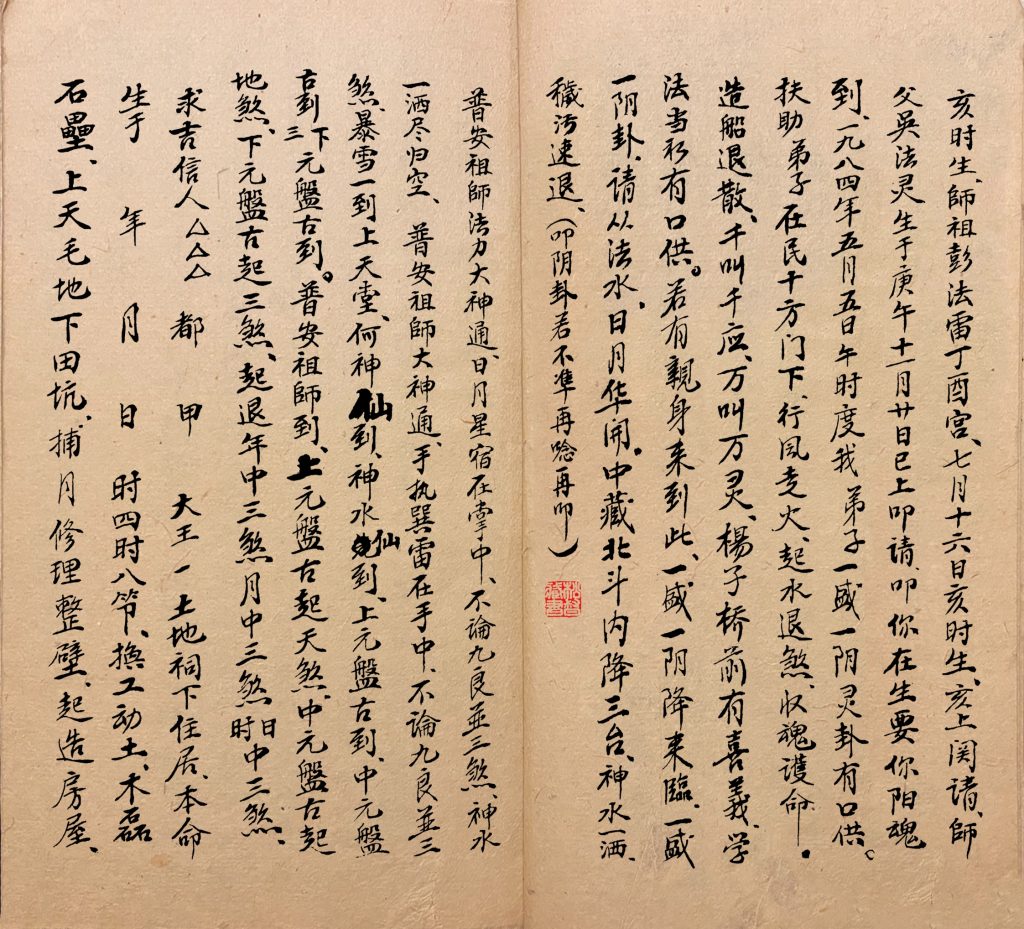 亥时生、師祖彭法雷丁酉宫、七月十六日亥时生、亥上関請、師
父吳法灵生于庚午十一月廿日巳上叩請、叩你在生要你阳魂
到、一九八四年五月五日午时度我 弟子一盛一阴灵卦有口供。
扶助弟子在民十方门下、行風走火、起水退煞、收魂護命。
造船退散、千叫千应、万叫万灵、楊子桥前有喜義、学
法当初有口供。若有親身来到此、一盛一阴降来臨、一盛
一阴卦、請从法水、日月华開。中藏北斗内降三台、神水一洒、
穢污速退、(叩阴卦若不準再唸再叩)
普安祖師法力大神通、日月星宿在掌中、不論九良並三煞、神水
一洒尽归空、普安祖師大神通、手执巽雷在手中、不論九良並三
煞、暴雪一到上天堂、何神仙到、神水仙到、上元盤古到、中元盤
古到三下元盤古到。普安祖師到、上元盤古起天煞、中元盤古起
地煞、下元盤古起三煞、起退年中三煞月中三煞日时中三煞、
求吉信人△△△ 都 甲 大王一土地祠下住居、本命
生于 年 月 日 时四时八節、換工动土、木磊
石壘、上天毛地下田坑、捕月修理整壁、起造房屋、